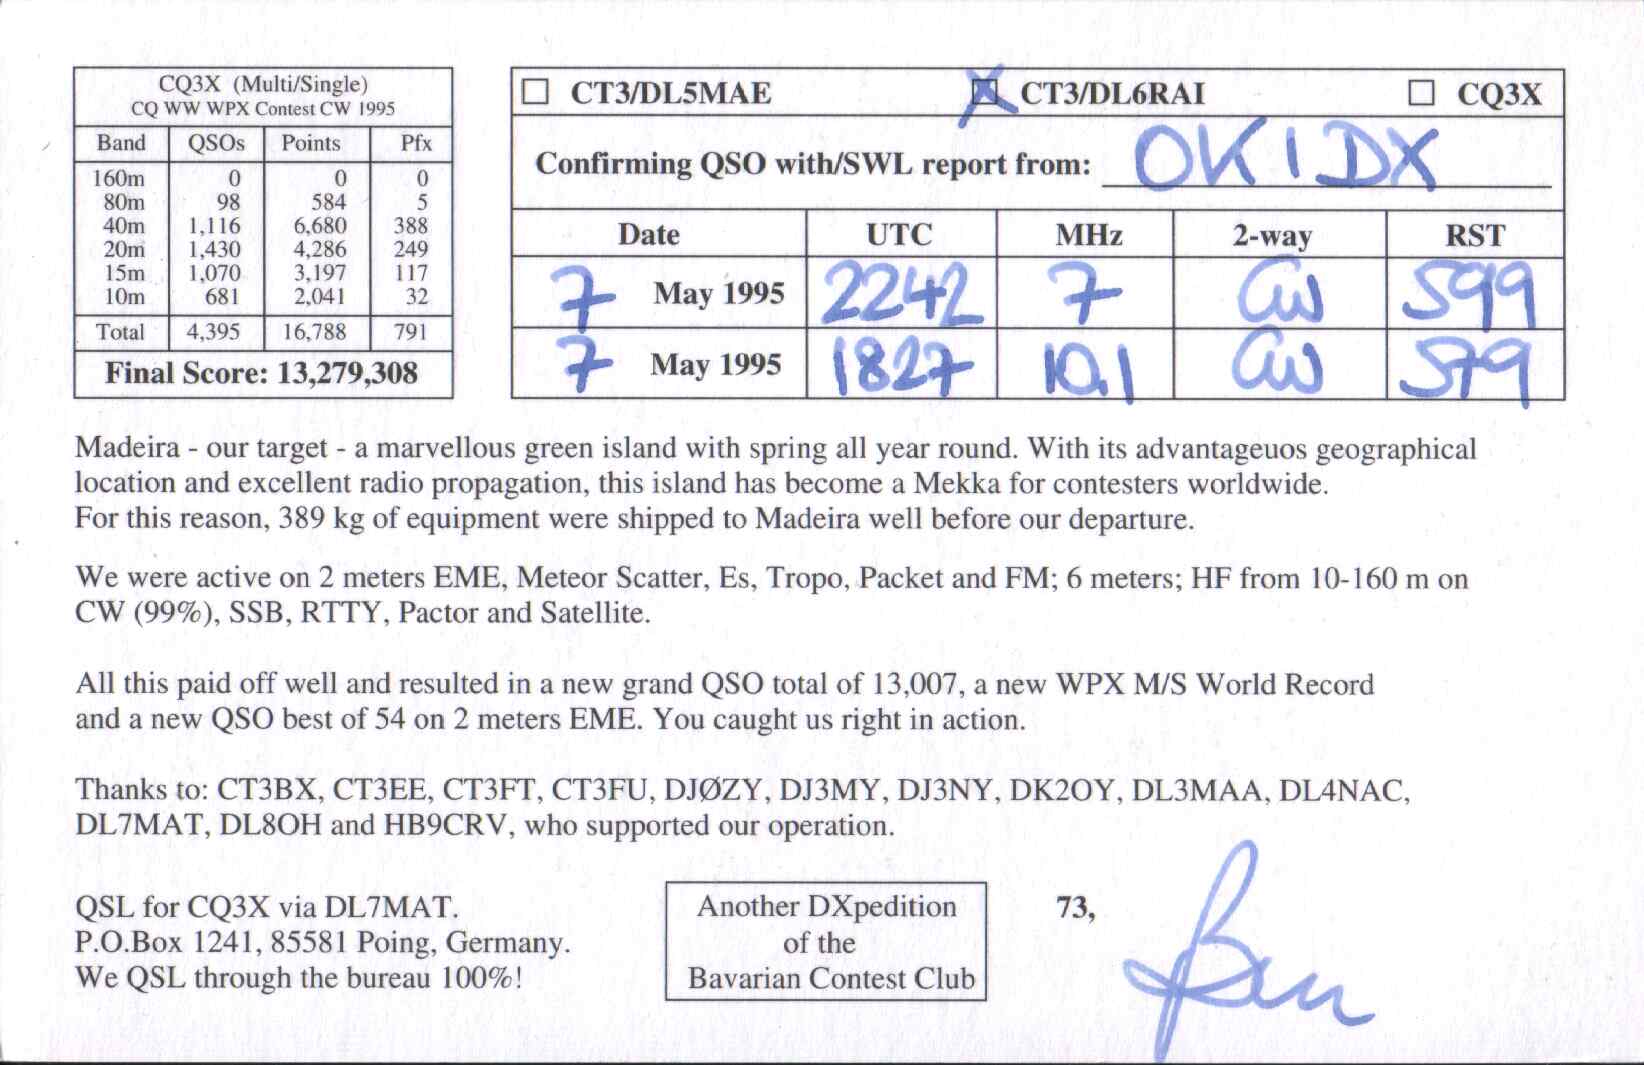 CQ3X (Multi/Single)
CQ WW WPX Contest CW 1995
Band QSOs Points Pfx
160m 0 0 0
80m 98 584 5
40m 1,116 6,680 388
20m 1,430 4,286 249
15m 1,070 3,197 117
10m 681 2,041 32
Total 4,395 16,788 791
Final Score: 13,279,308
CT3/DL5MAE X CT3/DL6RAI CQ3X
Confirming QSO with/SWL report from: OK1DX
Date UTC MHz 2-way RST
7 May 1995 2242 7 CW 599
7 May 1995 1827 10.1 CW 579
Madeira - our target - a marvellous green island with spring all year round. With its advantageuos geographical
location and excellent radio propagation, this island has become a Mekka for contesters worldwide.
For this reason, 389 kg of equipment were shipped to Madeira well before our departure.
We were active on 2 meters EME, Meteor Scatter, Es, Tropo, Packet and FM; 6 meters; HF from 10-160 m on
CW (99%), SSB, RTTY, Pactor and Satellite.
All this paid off well and resulted in a new grand QSO total of 13,007, a new WPX M/S World Record
and a new QSO best of 54 on 2 meters EME. You caught us right in action.
Thanks to: CT3BX, CT3EE, CT3FT, CT3FU, DJØZY, DJ3MY, DJ3NY, DK2OY, DL3MAA, DL4NAC,
DL7MAT, DL8OH and HB9CRV, who supported our operation.
QSL for CQ3X via DL7MAT.
P.O.Box 1241, 85581 Poing, Germany.
We QSL through the bureau 100%!
Another DXpedition
of the
Bavarian Contest Club
73,